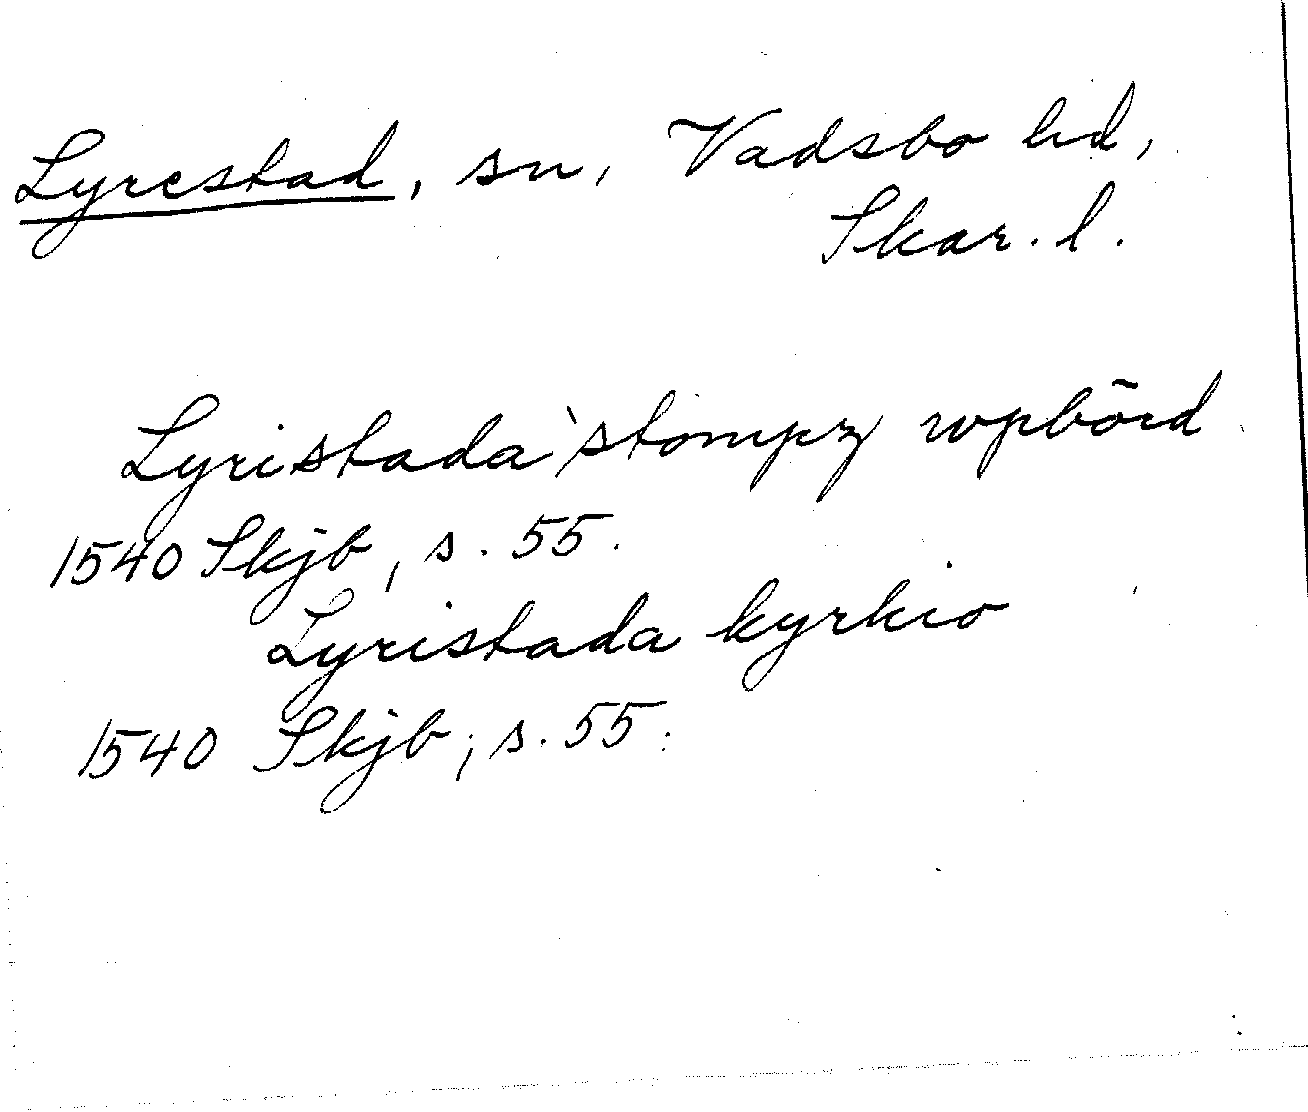 Lyrestad, sn, Vadsbo hd,
Skar. l.
Lyristada stompz wpbörd
1540 Skjb, s. 55.
Lyristada kyrkio
1540 Skjb, s. 55.